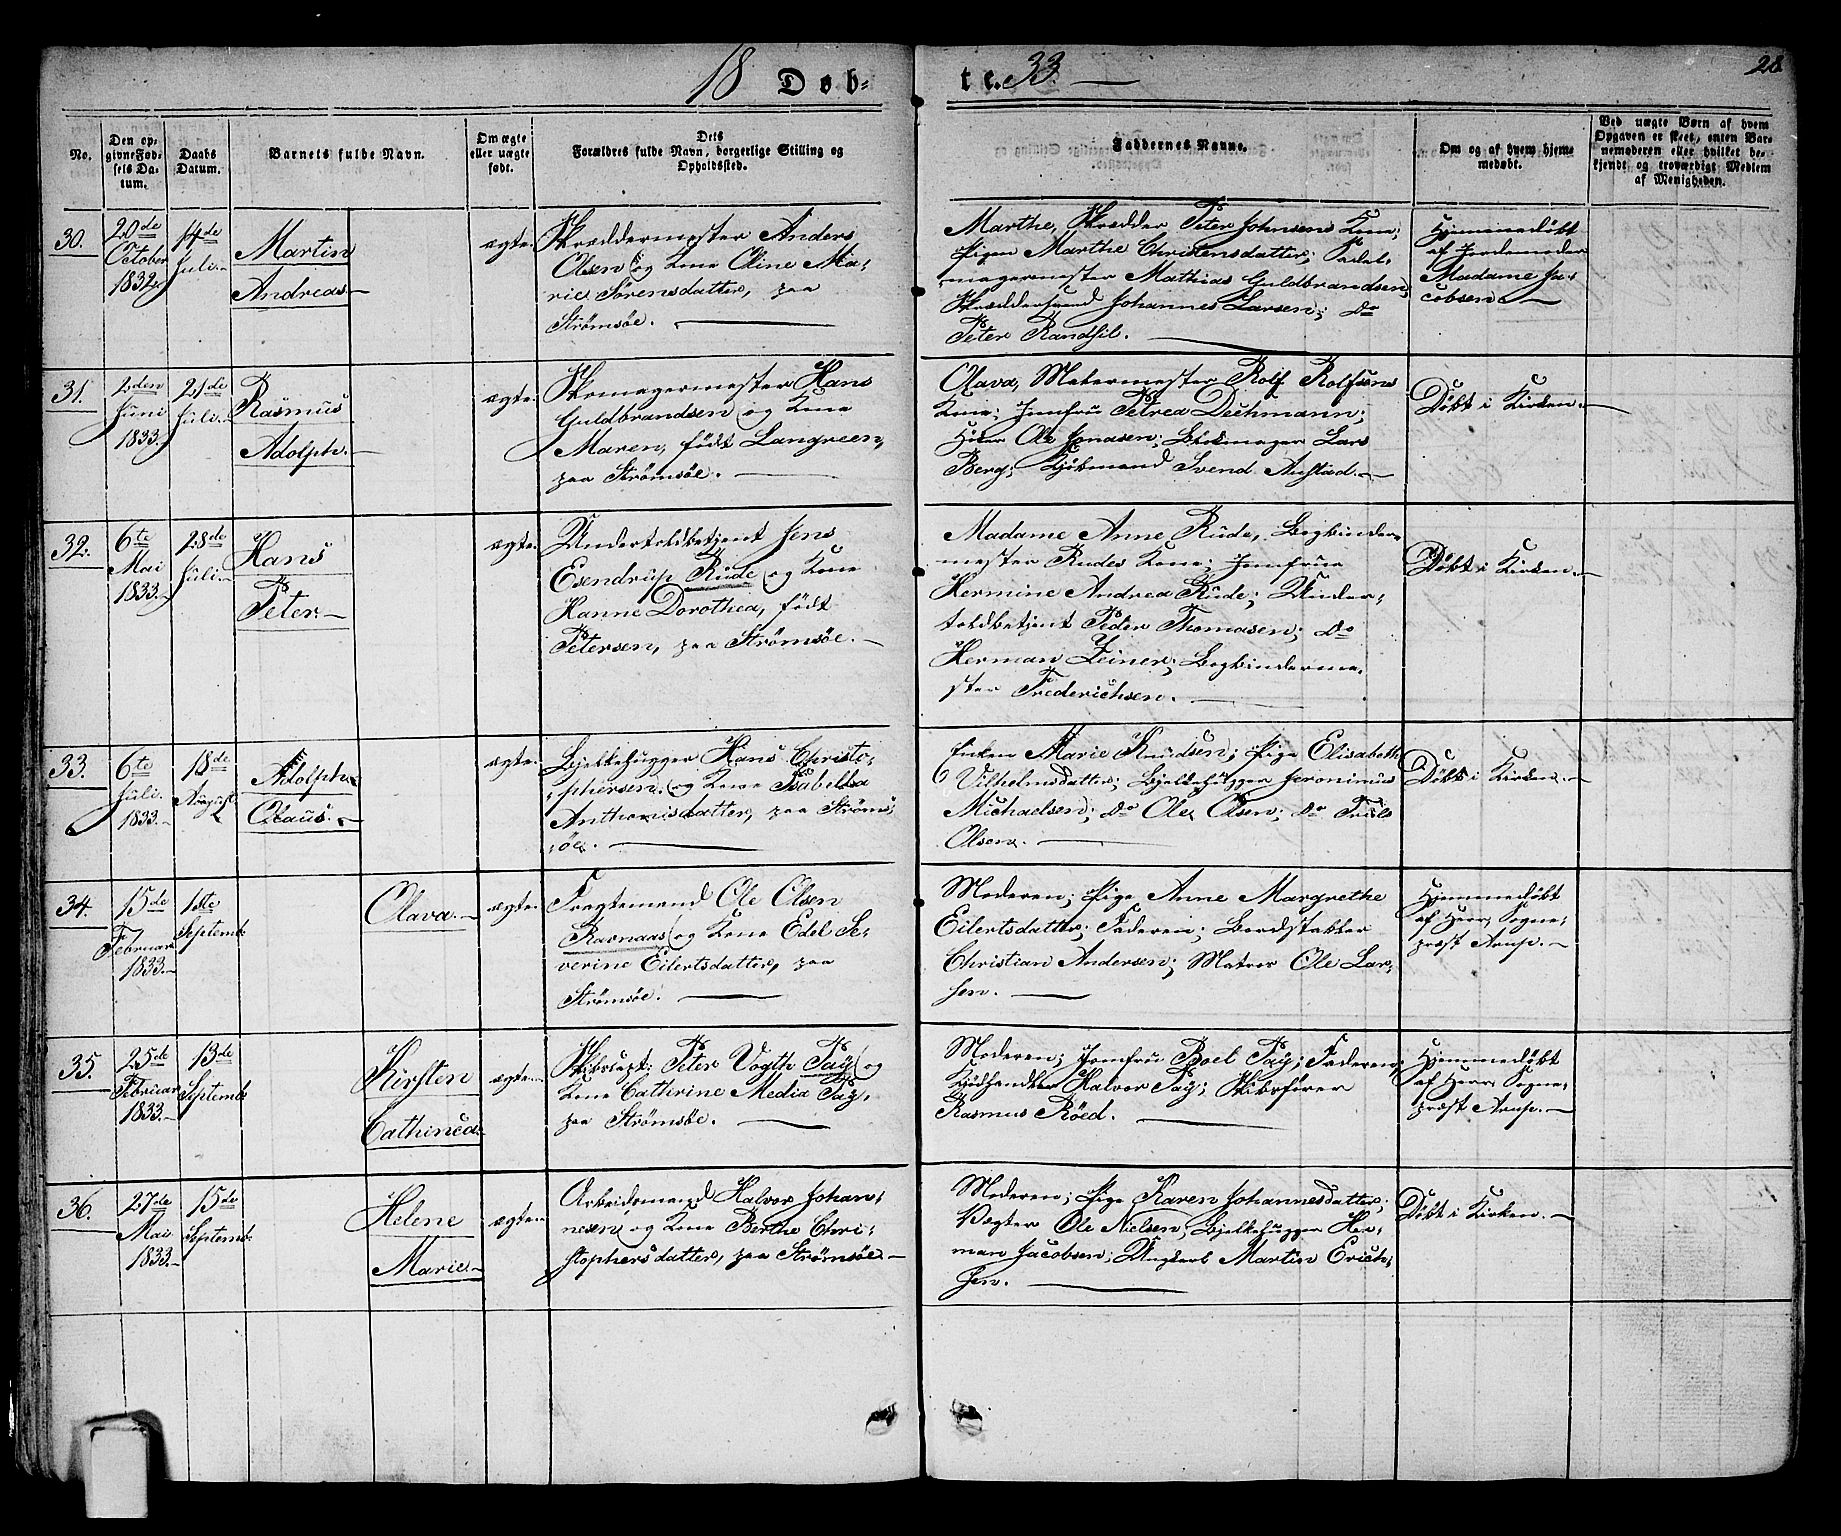 18 Døb=
te. 33.
28
No.
Den op=
givne Fød=
sels Da=
tum.
Daabs
Datum.
Barnets fulde Navn.
Om ægte
eller uægte
født.
Dets
Forældres fulde Navn, borgerlige Stilling og
Opholdssted.
Faddernes Navne.
Om og af hvem hjem=
medøbt.
Ved uægte Børn af hvem
Opgaven er skeet, enten Bar=
nemoderen eller hvilket be=
kjendt og troværdigt Medlem
af Menigheden.
30.
20de
October
1832
14de
Juli.
Martin
Andreas
ægte
Skræddermester Anders
Olsen og Kone Oline Ma=
rie Sørensdatter, paa
Strømsøe.
Marthe, Skrædder Peter Johnsens Kone;
Pigen Marthe Christensdatter;
magermester Mathias Guldbrandsen;
Skræddersvend Johannes Larsen; do
Peter Randsil.
Hjemmedøbt
af Jordemoder
Madame Ja=
cobsen.
31.
2den
Juni
1833.
21de
Juli.
Rasmus
Adolph.
ægte.
Skomagermester Hans
Guldbrandsen og Kone
Maren, født Langreen,
paa Strømsøe.
Olava, Matermester Rolf Rolfsens
Kone; Jomfru Petrea Dechmann;
Herr Ole Jonasen; Blokmager Lars
Berg; Kjøbmand Svend Anstad.
Døbt i Kirken.
32.
6te
Mai
1833.
28de
Juli.
Hans
Peter.
ægte.
Undertoldbetjent Jens
Esendrup Rude og Kone
Hanne Dorothea, født
Petersen, paa Strømsøe.
Madame Anne Rude, Bogbinder=
mester Rudes Kone; Jomfrue
Hermine Andrea Rude; Under=
toldbetjent Peder Thomasen; do
Herman Zeiner; Bogbinderme=
ster Frederichsen.
Døbt i Kirken.
33.
6te
Juli.
1833.
18de
August
Adolph
Olaus.
ægte.
Bjelkehugger Hans Christo=
phersen og Kone Isabella
Anthonisdatter, paa Strøms=
øe.
Enken Marie Knudsen; Pige Elisabeth
Vilhelmsdatter; Bjelkehugger Jeronimus
Michaelsen; do Ole Olsen; do Truls
Olsen.
Døbt i Kirken.
34.
15de
Februar
1833.
1ste
Septemb
Olava.
ægte.
Fragtemand Ole Olsen
Rasnaas og Kone Edel Se=
verine Eilertsdatter, paa
Strømsøe.
Moderen; Pige Anne Margrethe
Eilertsdatter; Faderen; Bordstabler
Christian Andersen; Matros Ole Lar=
sen.
Hjemmedøbt
af Herr Sogne=
præst Arup.
35.
25de
Februar
1833.
13de
Septemb
Kirsten
Cathinca
ægte
Skibscapt: Peter Vogth Tay og
Kone Cathrine Media Tay,
paa Strømsøe.
Moderen; Jomfru Boel Tay; Faderen,
Halvor Tay; Skibsfører
Rasmus Röed.
Hjemmedøbt
af Herr Sogne=
præst Arup.
36.
27de
Mai
1833.
15de
Septemb
Helene
Marie
ægte
Arbeidsmand Halvor Johan=
nesen og Kone Berthe Chri=
stophersdatter, paa Strømsøe
Moderen; Pige Karen Johannesdatter;
Vægter Ole Nielsen; Bjelkehugger Her=
man Jacobsen; Ungkarl Martin Erich=
sen.
Døbt i Kirken.